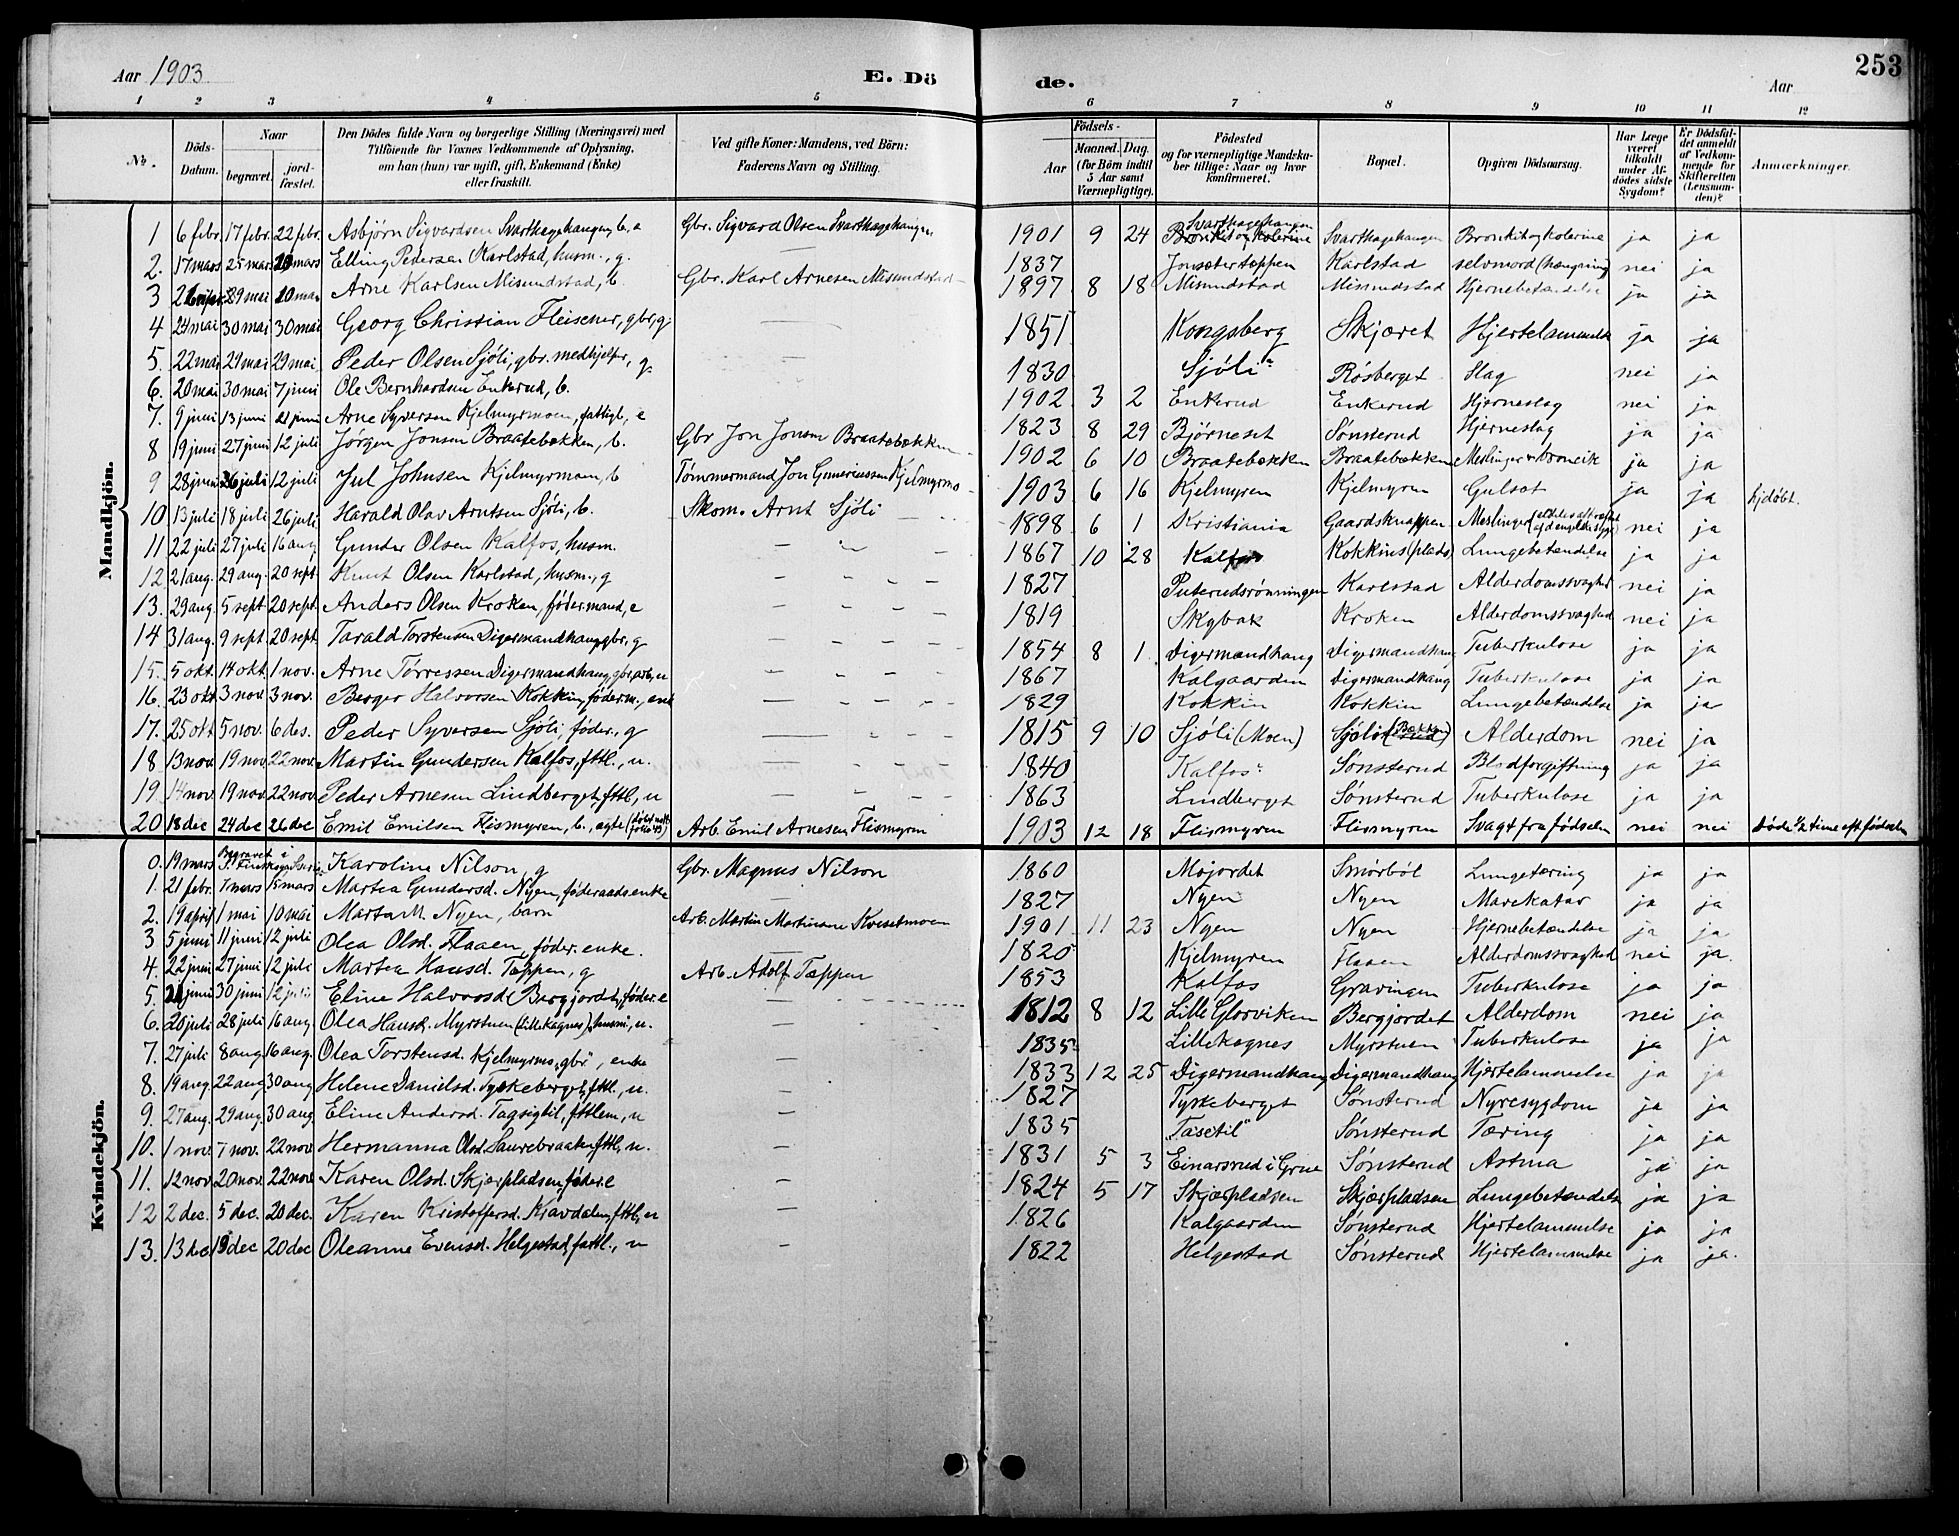 Aar 1903
E. Dö
de.
Aar
253
1 2 3 4 5 6 7 8 9 10 11 12
No. Döds-Datum. Naar begravet. jord-fæstet. Den Dödes fulde Navn og borgerlige Stilling (Næringsvei) med Tilföiende for Voxnes Vedkommende af Oplysning, om han (hun) var ugift, gift, Enkemand (Enke) eller fraskilt. Ved gifte Koner: Mandens, ved Börn: Faderens Navn og Stilling. Födsels- Aar Maaned. Dag. (for Börn indtil 5 Aar samt Værnepligtige). Födested og for værnepligtige Mandska-ber tillige: Naar og hvor konfirmeret. Bopæl. Opgiven Dödsaarsag. Har Læge været tilkaldt under Af-dödes sidste Sygdom? Er Dödsfal-det anmeldt af Vedkom-mende for Skifteretten (Lensman-den)? Anmærkninger.
Mandkjön.
1 6 febr. 17 febr. 22 febr. Asbjörn Sigvardsen Svarthagehangen, b. e Gbr. Sigvard Olsen Svarthagehangen 1901 9 24 Svarthagehangen Svarthagehangen Bronkit og kolerine ja ja
2. 17 mars 25 mars mars Elling Pedersen Karlstad, husm., g. 1837 Jonsætertoppen Karlstad selvmord (hængning) nei ja
3 29 mai Arne Karlsen Misundstad, b. Gbr. Karl Arnesen Misundstad 1897 8 18 Misundstad Misundstad Hjernebetændelse ja ja
4 24 mai 30 mai 30 mai Georg Christian Fleischer, gbr, g. 1851 Kongsberg Skjæret Hjertelammelse ja ja
5. 22 mai 29 mai 29 mai Peder Olsen Sjöli, gbr. medhjelper, g. 1830 Sjöli Rösberget Slag nei ja
6. 20 mai 30 mai 7 juni Ole Bernhardsen Enkerud, b. 1902 3 2 Enkerud Enkerud Hjerneslag nei ja
7. 9 juni 13 juni 21 juni Arne Syversen Kjelmyrmoen, fattigl., e 1823 8 29 Björneset Sönsterud Hjerneslag ja ja
8 19 juni 27 juni 12 juli Jörgen Jonsen Braatebækken, b. Gbr Jon Jonsen Braatebækken 1902 6 10 Braatebækken Braatebækken Meslinger + broncit ja ja
9 28 juni 26 juli 12 juli Jul Johnsen Kjelmyrmoen, b Tömmermand Jon Gunneriussen Kjelmyrmo 1903 6 16 Kjelmyren Kjelmyren Gulsot ja ja hjdöbt.
10 13 juli 18 juli 26 juli Harald Olav Arntsen Sjöli, b. Skom. Arnt Sjöli 1898 6 1 Kristiania Gaardsknappen Meslinger nei ja
11 22 juli 27 juli 16 aug Gunder Olsen Kalfos, husm. 1867 10 28 Kalfos Kokkins(plads) Lungebetændelse ja ja
12 21 aug. 29 aug. 20 sept. Knut Olsen Karlstad, husm., g 1827 Puterudsrönningen Karlstad Alderdomssvaghed nei ja
13. 29 aug. 5 sept 20 sept. Anders Olsen Kroken, födermand, e 1819 Skybak Kroken Alderdomssvaghed nei ja
14 31 aug. 9 sept. 20 sept. Tarald Torstensen Digermandhang gbr. g 1854 8 1. Digermandhang Digermandhang Tuberkulose ja ja
15. 5 okt. 14 okt. 1 nov. Arne Törressen Digermandhang, gbr. arb, u 1867 Kalgaarden Digermandhang Tuberkulose ja ja
16. 23 okt 3 nov 3 nov. Berger Halvorsen Kokkin, föderm., enk 1829 Kokkin Kokkin Lungebetændelse ja ja
17. 25 okt 5 nov. 6 des. Peder Syversen Sjöli, föder., g 1815 9 10 Sjöli (Moen) Sjöli (Bækken) Alderdom nei ja
18 13 nov. 19 nov. 22 nov. Martin Gundersen Kalfos, fttl., u. 1840 Kalfos Sönsterud Blodforgiftning ja ja
19 14 nov. 19 nov. 22 nov. Peder Arnesen Lindberget, fttl, u 1863 Lindberget Sönsterud Tuberkulose ja ja
20 18 dec 24 dec 26 dec Emil Emilsen Flismyren, b., ægte Arb. Emil Arnesen Flismyren 1903 12 18 Flismyren Flismyren Svagt fra födselen nei nei döde 1/2 time eft. födselen
Kvindekjön.
0. 19 mars Begravet i Karoline Nilson, g Gbr. Magnus Nilson 1860 Mojordet Smörböl Lungetæring ja ja
1. 21 febr. 7 mars 15 mars Martea Gundersd. Nyen, föderaadsenke 1827 Nyen Nyen Mavekatar ja ja
2. 19 april 1 mai 10 mai Marta M. Nyen, barn Arb. Martin Martinsen Kvesetmoen 1901 11 23 Nyen Nyen Hjernebetændelse ja ja
3 5 juni 11 juni 12 juli Olea Olsd. Flaaen, föder. enke. 1820 Kjelmyren Flaaen Alderdomssvaghed nei ja.
4. 22 juni 27 juni 12 juli Martea Hansd. Tappen, g Arb. Adolf Tappen 1853 Kalfos Gravingen Tuberkulose ja ja
5. 21 juni 30 juni 12 juli Eline Halvorsd Bergjordet, föder. e 1812 8 12 Lille Glorviken Bergjordet Alderdom nei ja
6. 20 juli 28 juli 16 aug. Olea Hansd. Myrstuen (Lillekagnes), husm., u. 1835 Lillekagnes Myrstuen Tuberkulose ja ja
7. 27 juli 8 aug 16 aug. Olea Torstensd. Kjelmyrmo, gbr., enke 1833 12 25 Digermandhang Digermandhang Hjertelammelse ja ja
8. 19 aug 22 aug 30 aug Helene Danielsd. Tyskeberget, fttl., u. 1827 Tyskeberget Sönsterud Nyresygdom ja ja
9. 27 aug. 29 aug. 30 aug. Eline Andersd. Tagsigtil, fttlem, u 1835 "Tasetil" Sönsterud Tæring ja ja
10. 1 nov. 7 nov. 22 nov. Hermanna Olsd. Laurebraaten, fttl, u. 1831 5 3 Einarsrud i Grue Sönsterud Astma ja ja
11. 12 nov. 20 nov. 22 nov. Karen Olsd. Skjærpladsen, föder. e 1824 5 17 Skjærpladsen Skjærpladsen Lungebetændelse ja ja
12 2 dec. 5 dec. 20 dec. Karen Kristoffersd. Kjavdalen, fttl., u 1826 Kalgaarden Sönsterud Hjertelammelse ja ja
13. 13 dec 19 dec 20 dec Oleanne Evensd. Helgestad, fattl., u 1822 Helgestad Sönsterud Hjertelammelse ja ja.